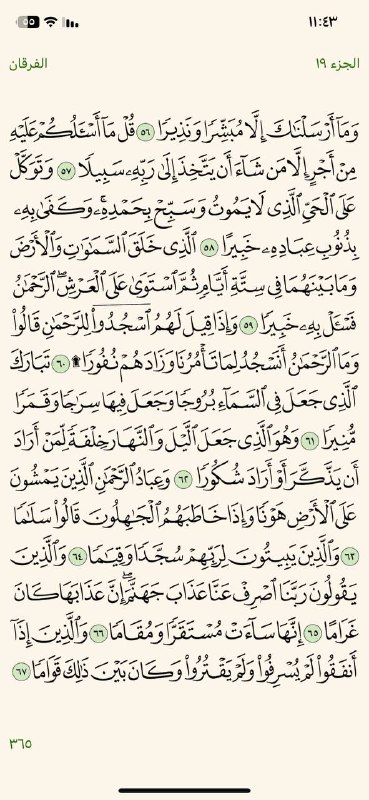 ١١:٤٣
الجزء ١٩
الفرقان
وَمَآ أَرْسَلْنَٰكَ إِلَّا مُبَشِّرًا وَنَذِيرًا ٥٦ قُلْ مَآ أَسْـَٔلُكُمْ عَلَيْهِ
مِنْ أَجْرٍ إِلَّا مَن شَآءَ أَن يَتَّخِذَ إِلَىٰ رَبِّهِۦ سَبِيلًا ٥٧ وَتَوَكَّلْ
عَلَى ٱلْحَىِّ ٱلَّذِى لَا يَمُوتُ وَسَبِّحْ بِحَمْدِهِۦ ۚ وَكَفَىٰ بِهِۦ
بِذُنُوبِ عِبَادِهِۦ خَبِيرًا ٥٨ ٱلَّذِى خَلَقَ ٱلسَّمَٰوَٰتِ وَٱلْأَرْضَ
وَمَا بَيْنَهُمَا فِى سِتَّةِ أَيَّامٍ ثُمَّ ٱسْتَوَىٰ عَلَى ٱلْعَرْشِ ۖ ٱلرَّحْمَٰنُ
فَسْـَٔلْ بِهِۦ خَبِيرًا ٥٩ وَإِذَا قِيلَ لَهُمُ ٱسْجُدُوا۟ لِلرَّحْمَٰنِ قَالُوا۟
وَمَا ٱلرَّحْمَٰنُ أَنَسْجُدُ لِمَا تَأْمُرُنَا وَزَادَهُمْ نُفُورًا ۩ ٦٠ تَبَارَكَ
ٱلَّذِى جَعَلَ فِى ٱلسَّمَآءِ بُرُوجًا وَجَعَلَ فِيهَا سِرَٰجًا وَقَمَرًا
مُّنِيرًا ٦١ وَهُوَ ٱلَّذِى جَعَلَ ٱلَّيْلَ وَٱلنَّهَارَ خِلْفَةً لِّمَنْ أَرَادَ
أَن يَذَّكَّرَ أَوْ أَرَادَ شُكُورًا ٦٢ وَعِبَادُ ٱلرَّحْمَٰنِ ٱلَّذِينَ يَمْشُونَ
عَلَى ٱلْأَرْضِ هَوْنًا وَإِذَا خَاطَبَهُمُ ٱلْجَٰهِلُونَ قَالُوا۟ سَلَٰمًا
٦٣ وَٱلَّذِينَ يَبِيتُونَ لِرَبِّهِمْ سُجَّدًا وَقِيَٰمًا ٦٤ وَٱلَّذِينَ
يَقُولُونَ رَبَّنَا ٱصْرِفْ عَنَّا عَذَابَ جَهَنَّمَ ۖ إِنَّ عَذَابَهَا كَانَ
غَرَامًا ٦٥ إِنَّهَا سَآءَتْ مُسْتَقَرًّا وَمُقَامًا ٦٦ وَٱلَّذِينَ إِذَآ
أَنفَقُوا۟ لَمْ يُسْرِفُوا۟ وَلَمْ يَقْتُرُوا۟ وَكَانَ بَيْنَ ذَٰلِكَ قَوَامًا ٦٧
٣٦٥